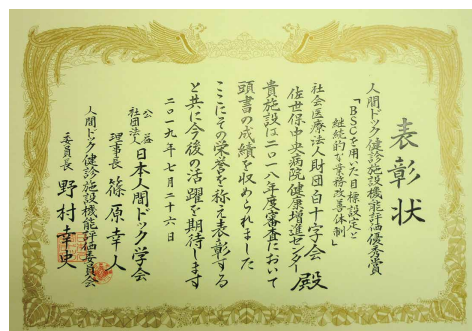 表彰状
人間ドック健診施設機能評価優秀賞
「BSCを用いた目標設定と
継続的な業務改善体制」
社会医療法人財団白十字会
佐世保中央病院健康増進センター 殿
貴施設は二〇一八年度審査において
頭書の成績を収められました
ここにその栄誉を称え表彰する
と共に今後の活躍を期待します
二〇一九年七月二十六日
公益社団法人 日本人間ドック学会
理事長 篠原幸人
人間ドック健診施設機能評価委員会
委員長 野村幸史